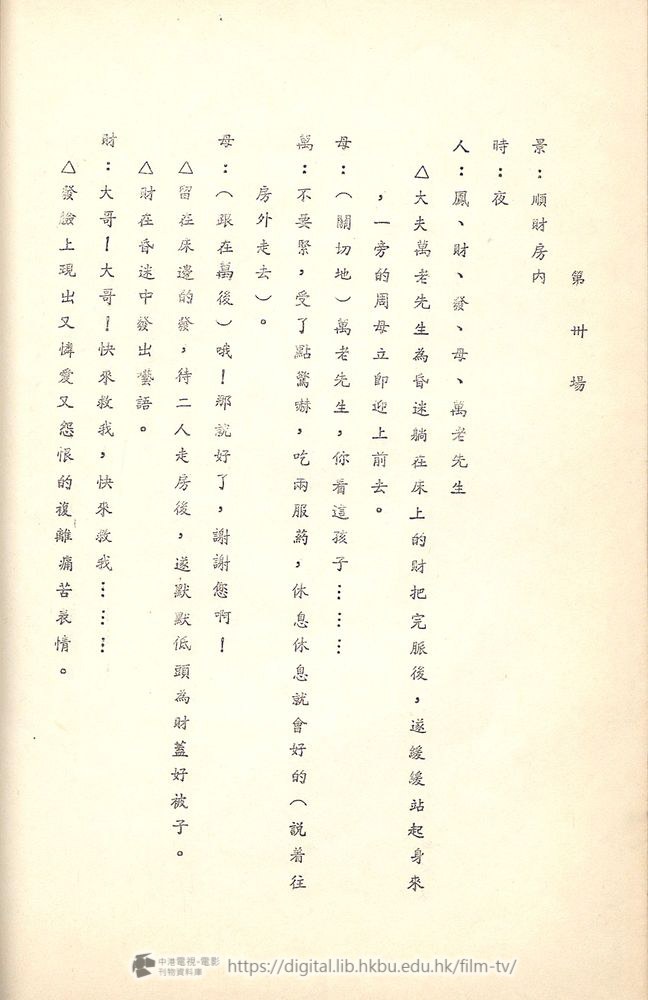 第卅場
景：順財房内
時：夜
人：鳳、財、發、母、萬老先生
△大夫萬老先生為昏迷躺在床上的財把完脈後，遂緩緩站起身來
，一旁的周母立即迎上前去。
母：（關切地）萬老先生，你看這孩子………
萬：不要緊，受了點驚嚇，吃兩服葯，休息休息就會好的（説着往
房外走去）。
母：（跟在萬後）哦！那就好了，謝謝您啊！
△留在床邊的發，待二人走房後，遂默默低頭為財蓋好被子。
△財在昏迷中發出囈語。
財：大哥！大哥！快來救我，快來救我………
△發臉上現出又憐愛又怨恨的複離痛苦表情。
中港電視-電影
刊物資料庫
https://digital.lib.hkbu.edu.hk/film-tv/